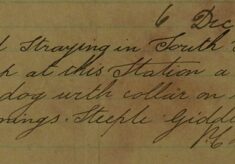 6 Dec
Straying in South
at this Station a
dog with collar on
nings. Steeple Gidd
P.C.